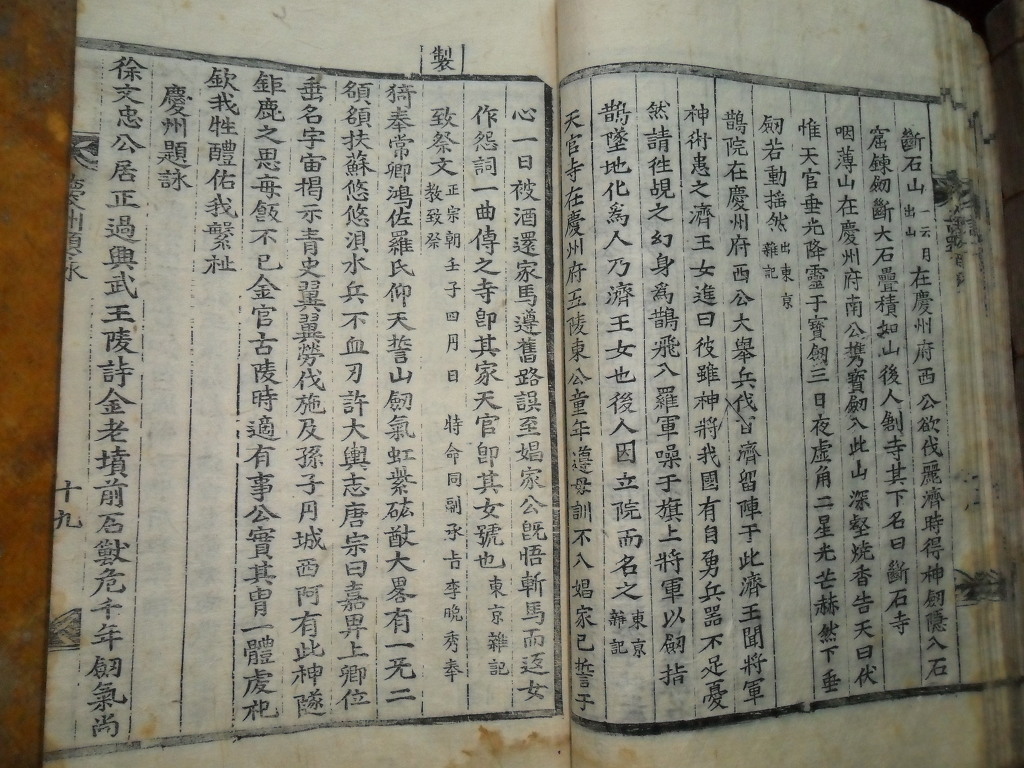 斷石山 一云月出山 在慶州府西公欲伐麗濟時得神劒隱入石
窟鍊劒斷大石疊積如山後人創寺其下名曰斷石寺
咽薄山在慶州府南公携寶劒入此山深壑燒香告天曰伏
惟天官垂光降靈于寶劒三日夜虛角二星光芒赫然下垂
劒若動搖然 出東京雜記
鵲院在慶州府西公大擧兵伐百濟留陣于此濟王聞將軍
神術患之濟王女進曰彼雖神將我國有自勇兵器不足憂
然請徃覘之幻身為鵲飛入羅軍噪于旗上將軍以劒指
鵲墜地化為人乃濟王女也後人因立院而名之 東京雜記
天官寺在慶州府五陵東公童年遵母訓不入娼家已誓于
心一日被酒還家馬遵舊路誤至娼家公旣悟斬馬而返女
作怨詞一曲傳之寺卽其家天官卽其女號也 東京雜記
致祭文 正宗朝壬子四月日 特命同副承旨李晩秀奉
敎致祭
製
猗奉常卿鴻佐羅氏仰天誓山劒氣虹紫紘猷大畧有一无二
頟頟扶蘇悠悠浿水兵不血刃許大輿志唐宗曰嘉畀上卿位
垂名宇宙揭示青史翼翼勞伐施及孫子円城西阿有此神隧
鉅鹿之思每飯不已金官古陵時適有事公實其胄一體虔祀
欽我牲醴佑我繫祉
慶州題詠
徐文忠公居正過興武王陵詩金老墳前石獸危千年劒氣尚
慶州題咏
十九